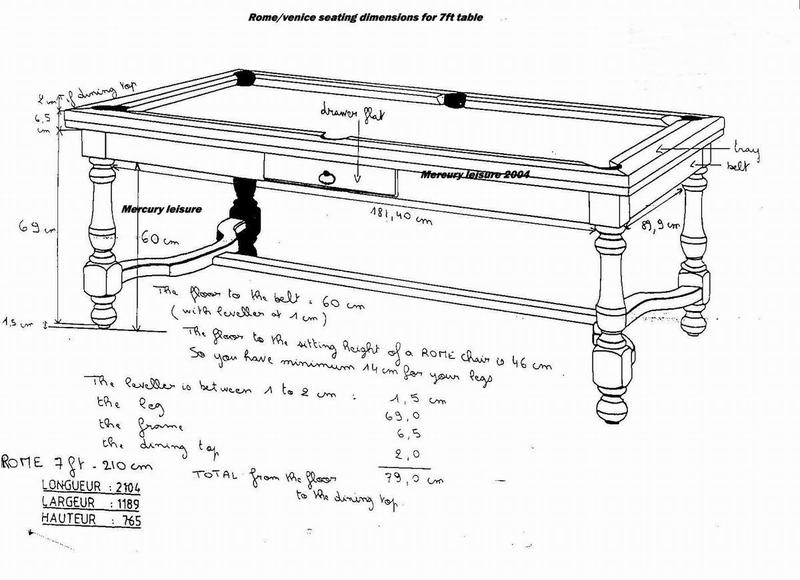 Rome/venice seating dimensions for 7ft table
2 cm if dining top
6,5
cm
drawer flat
tray
belt
Mercury leisure 2004
Mercury leisure
181,40 cm
89,9 cm
69 cm
60 cm
1,5 cm
The floor to the belt : 60 cm
(with leveller at 1 cm)
The floor to the sitting height of a ROME chair is 46 cm
So you have minimum 14 cm for your legs
The leveller is between 1 to 2 cm : 1,5 cm
the leg 69,0
the frame 6,5
the dining top 2,0
TOTAL from the floor 79,0 cm
to the dining top
ROME 7 ft - 210 cm
LONGUEUR : 2104
LARGEUR : 1189
HAUTEUR : 765